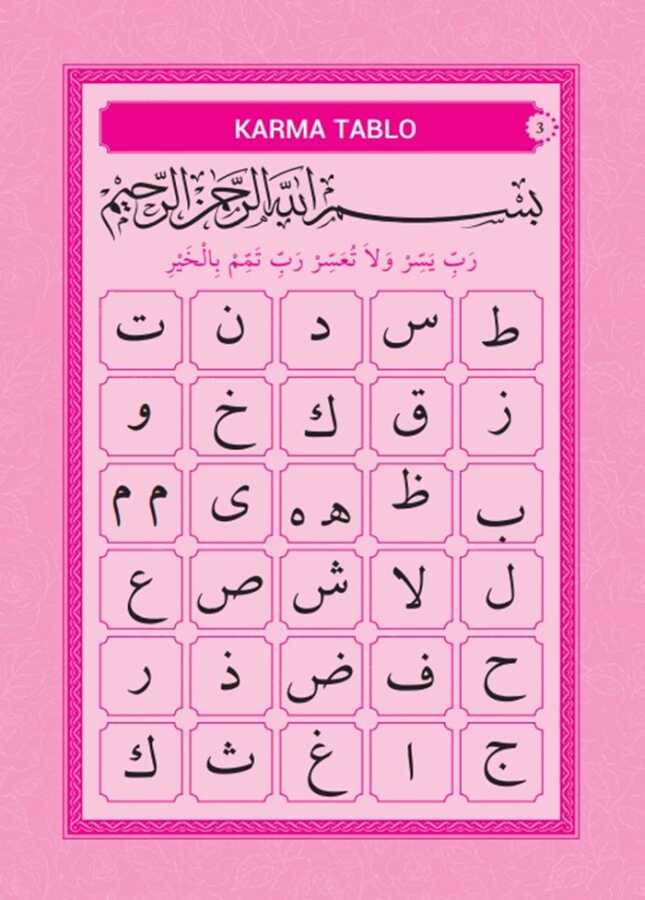 KARMA TABLO
3
بسم الله الرحمن الرحيم
رَبِّ يَسِّرْ وَلاَ تُعَسِّرْ رَبِّ تَمِّمْ بِالْخَيْرِ
ط س د ن ت
ز ق ك خ و
ب ظ ه ه ى م م
ل لا ش ص ع
ح ف ض ذ ر
ج ا غ ث ك